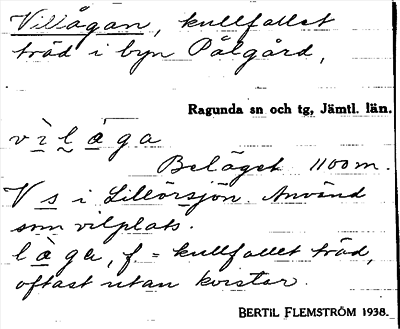 Villågan, kullfallet
träd i byn Pålgård,
Ragunda sn och tg, Jämtl. län.
vìlåga
Beläget 1100 m.
V s i Lillörsjön. Använd
som vilplats.
låga, f. = kullfallet träd,
oftast utan kvistar.
BERTIL FLEMSTRÖM 1938.